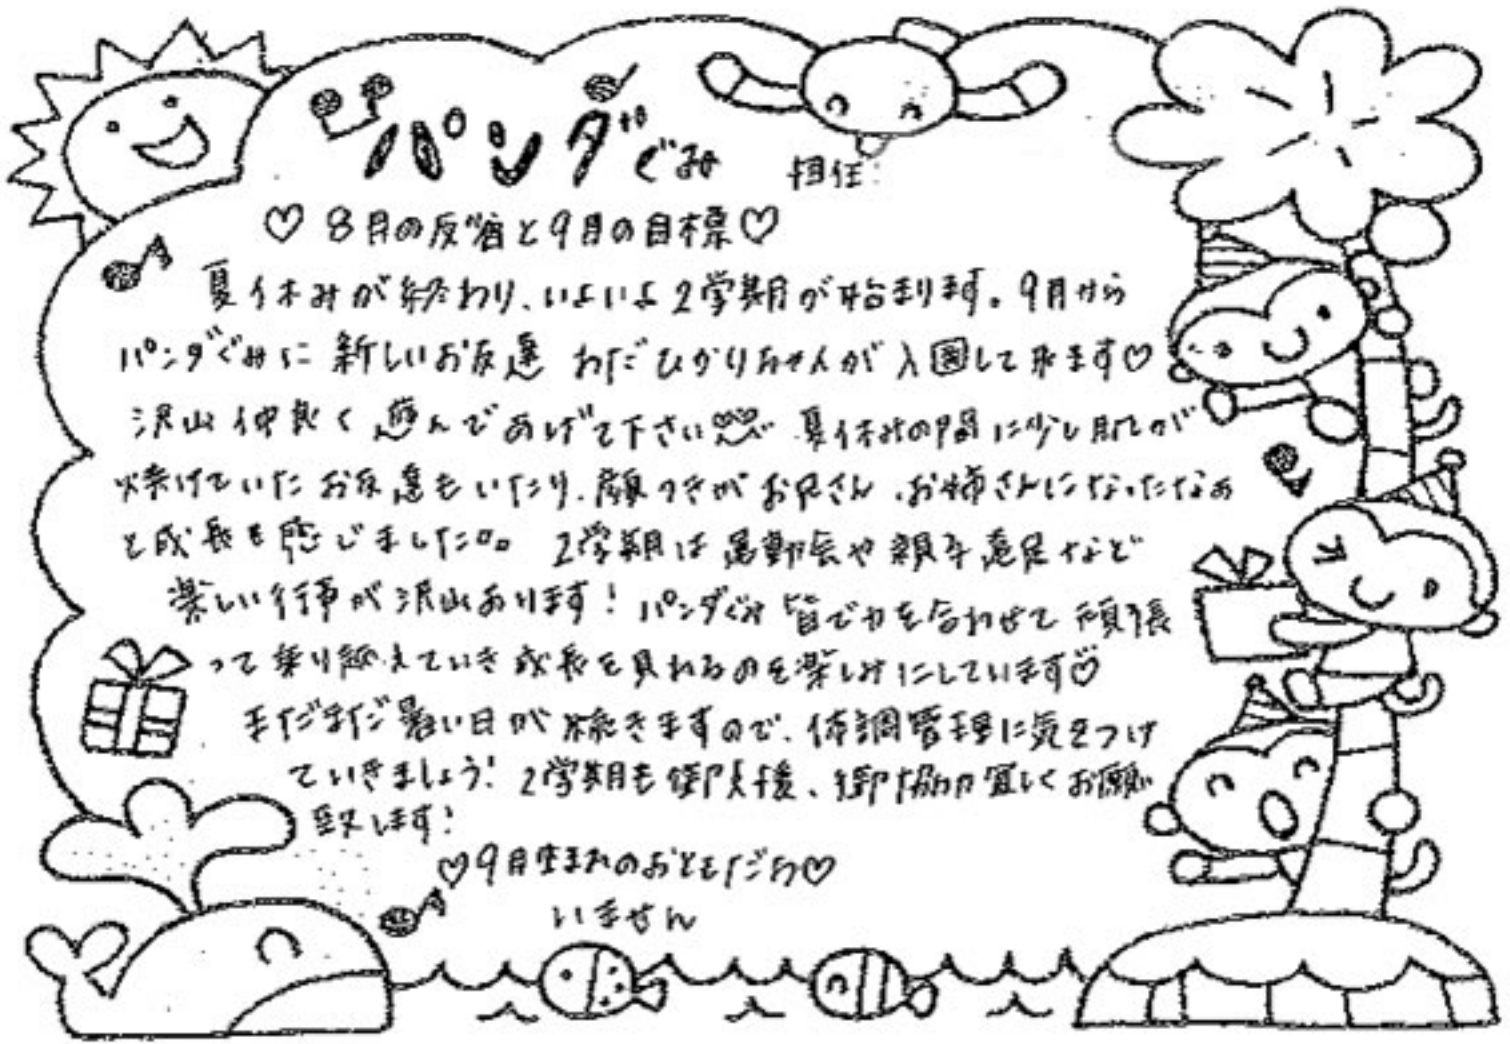 パンダぐみ 担任:
♡8月の反省と9月の目標♡
夏休みが終わり、いよいよ2学期が始まります。9月から
パンダぐみに新しいお友達 わだひかりちゃんが入園して来ます♡
沢山仲良く遊んであげて下さい 夏休みの間に少し肌が
焼けていたお友達もいたり、顔つきがお兄さん、お姉さんになったなぁ
と成長を感じました。 2学期は運動会や親子遠足など
楽しい行事が沢山あります! パンダぐみ皆で力を合わせて頑張
って乗り越えていき成長を見れるのを楽しみにしています♡
まだまだ暑い日が続きますので、体調管理に気をつけ
ていきましょう! 2学期も御支援、御協力宜しくお願い
致します!
♡9月生まれのおともだち♡
いません